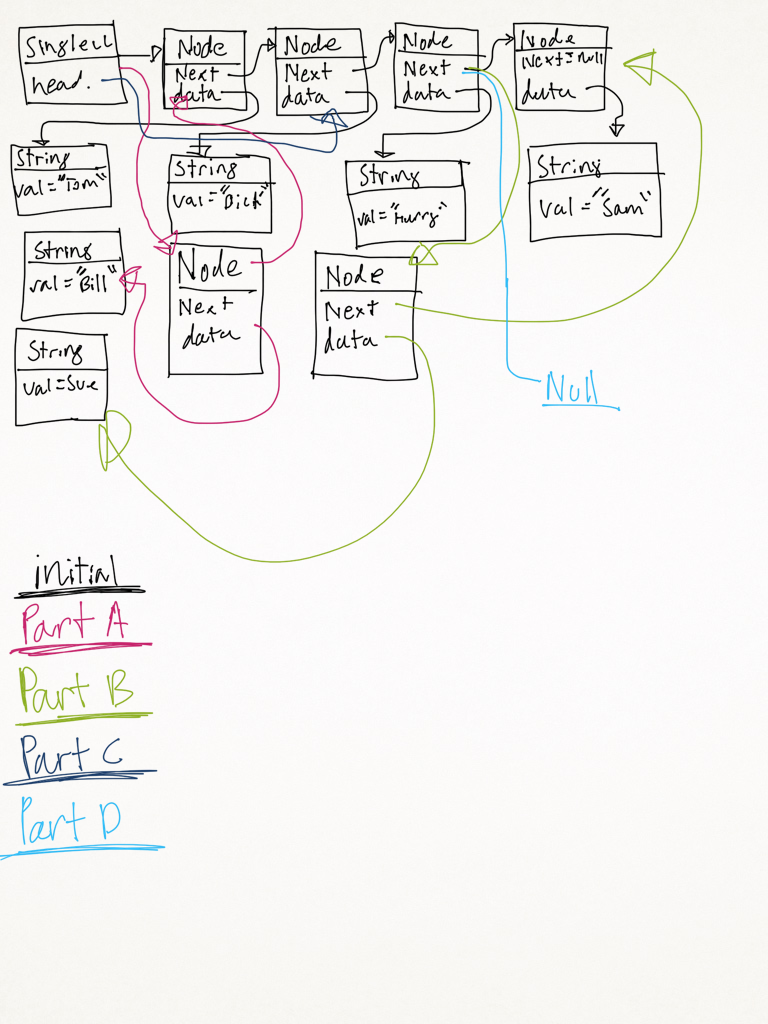 SingleLL
head.
Node
Next
data
Node
Next
data
Node
Next
data
Node
Next=null
data
String
val="Tom"
String
val="Dick"
String
val="Harry"
String
val="Sam"
String
val="Bill"
Node
Next
data
Node
Next
data
String
val=Sue
Null
initial
Part A
Part B
Part C
Part D